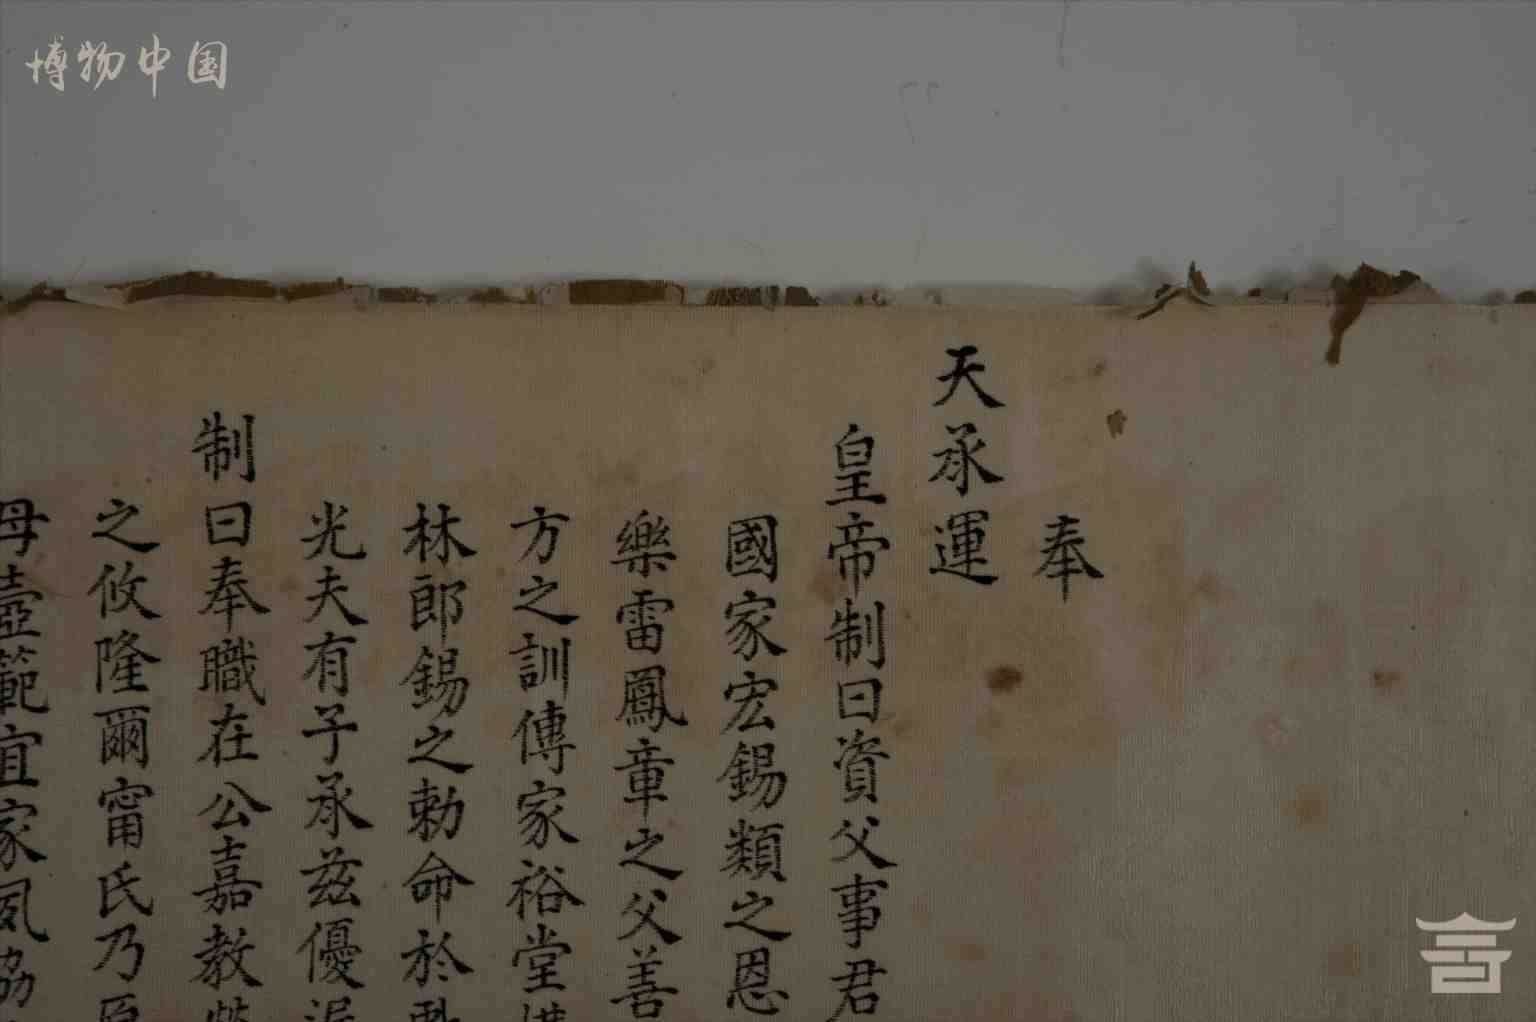 博物中国
奉
天承運
皇帝制曰資父事君
國家宏錫類之恩
樂雷鳳章之父善
方之訓傳家裕堂
林郎錫之勅命於
光夫有子承茲優
制曰奉職在公嘉教
之攸隆爾甯氏乃
母壼範宜家夙協